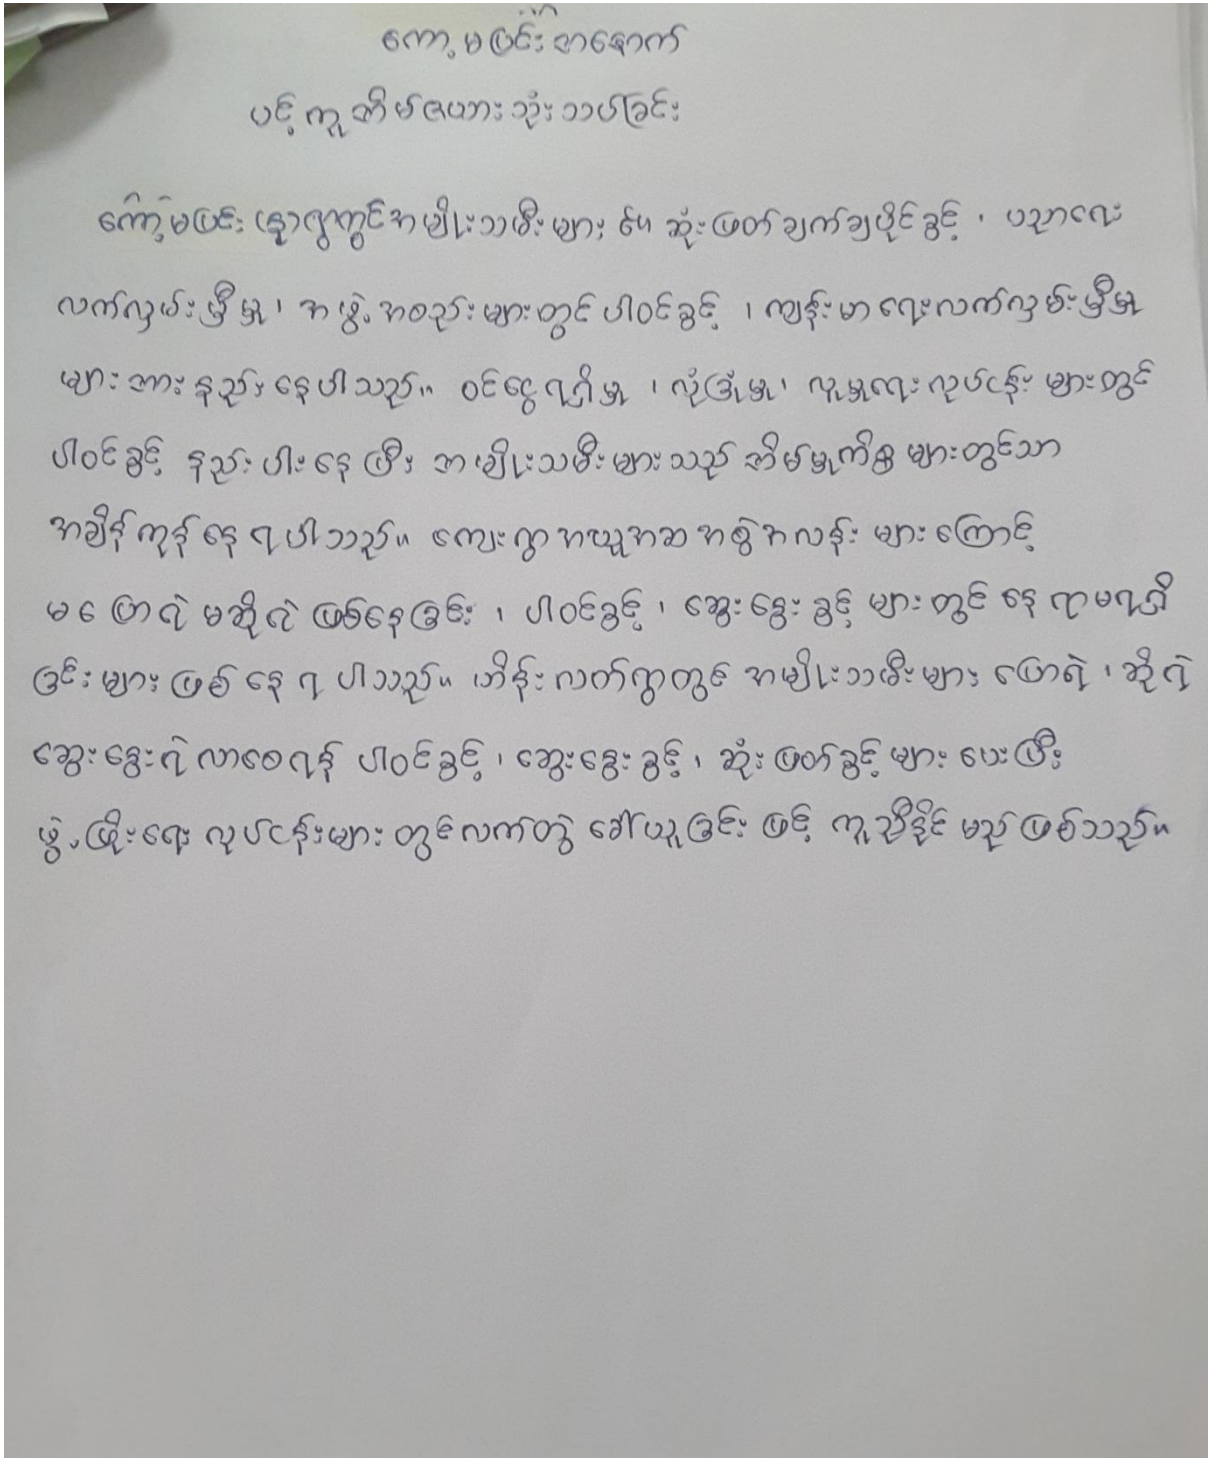 ကော့မပြင်းအနောက်
ပင့်ကူအိမ်ဇယားသုံးသပ်ခြင်း
ကော့မပြင်း ကျေးရွာတွင်အမျိုးသမီးများ၏ ဆုံးဖြတ်ချက်ချပိုင်ခွင့်၊ ပညာရေး
လက်လှမ်းမှီမှု၊ အဖွဲ့အစည်းများတွင်ပါဝင်ခွင့်၊ ကျန်းမာရေးလက်လှမ်းမှီမှု
များအားနည်းနေပါသည်။ ဝင်ငွေရရှိမှု၊ လုံခြုံမှု၊ လူမှုရေးလုပ်ငန်းများတွင်
ပါဝင်ခွင့် နည်းပါးနေပြီး အမျိုးသမီးများသည် အိမ်မှုကိစ္စများတွင်သာ
အချိန်ကုန်နေရပါသည်။ ကျေးရွာအယူအဆ အစွဲအလန်းများကြောင့်
မပြောရဲမဆိုရဲဖြစ်နေခြင်း၊ ပါဝင်ခွင့်၊ ဆွေးနွေးခွင့်များတွင် နေရာမရရှိ
ခြင်းများဖြစ်နေရပါသည်။ အိန်းလတ်ရွာတွင် အမျိုးသမီးများ ပြောရဲ၊ ဆိုရဲ
ဆွေးနွေးရဲလာစေရန် ပါဝင်ခွင့်၊ ဆွေးနွေးခွင့်၊ ဆုံးဖြတ်ခွင့်များပေးပြီး
ဖွံ့ဖြိုးရေးလုပ်ငန်းများတွင်လက်တွဲခေါ်ယူခြင်းဖြင့် ကူညီနိုင်မည်ဖြစ်သည်။